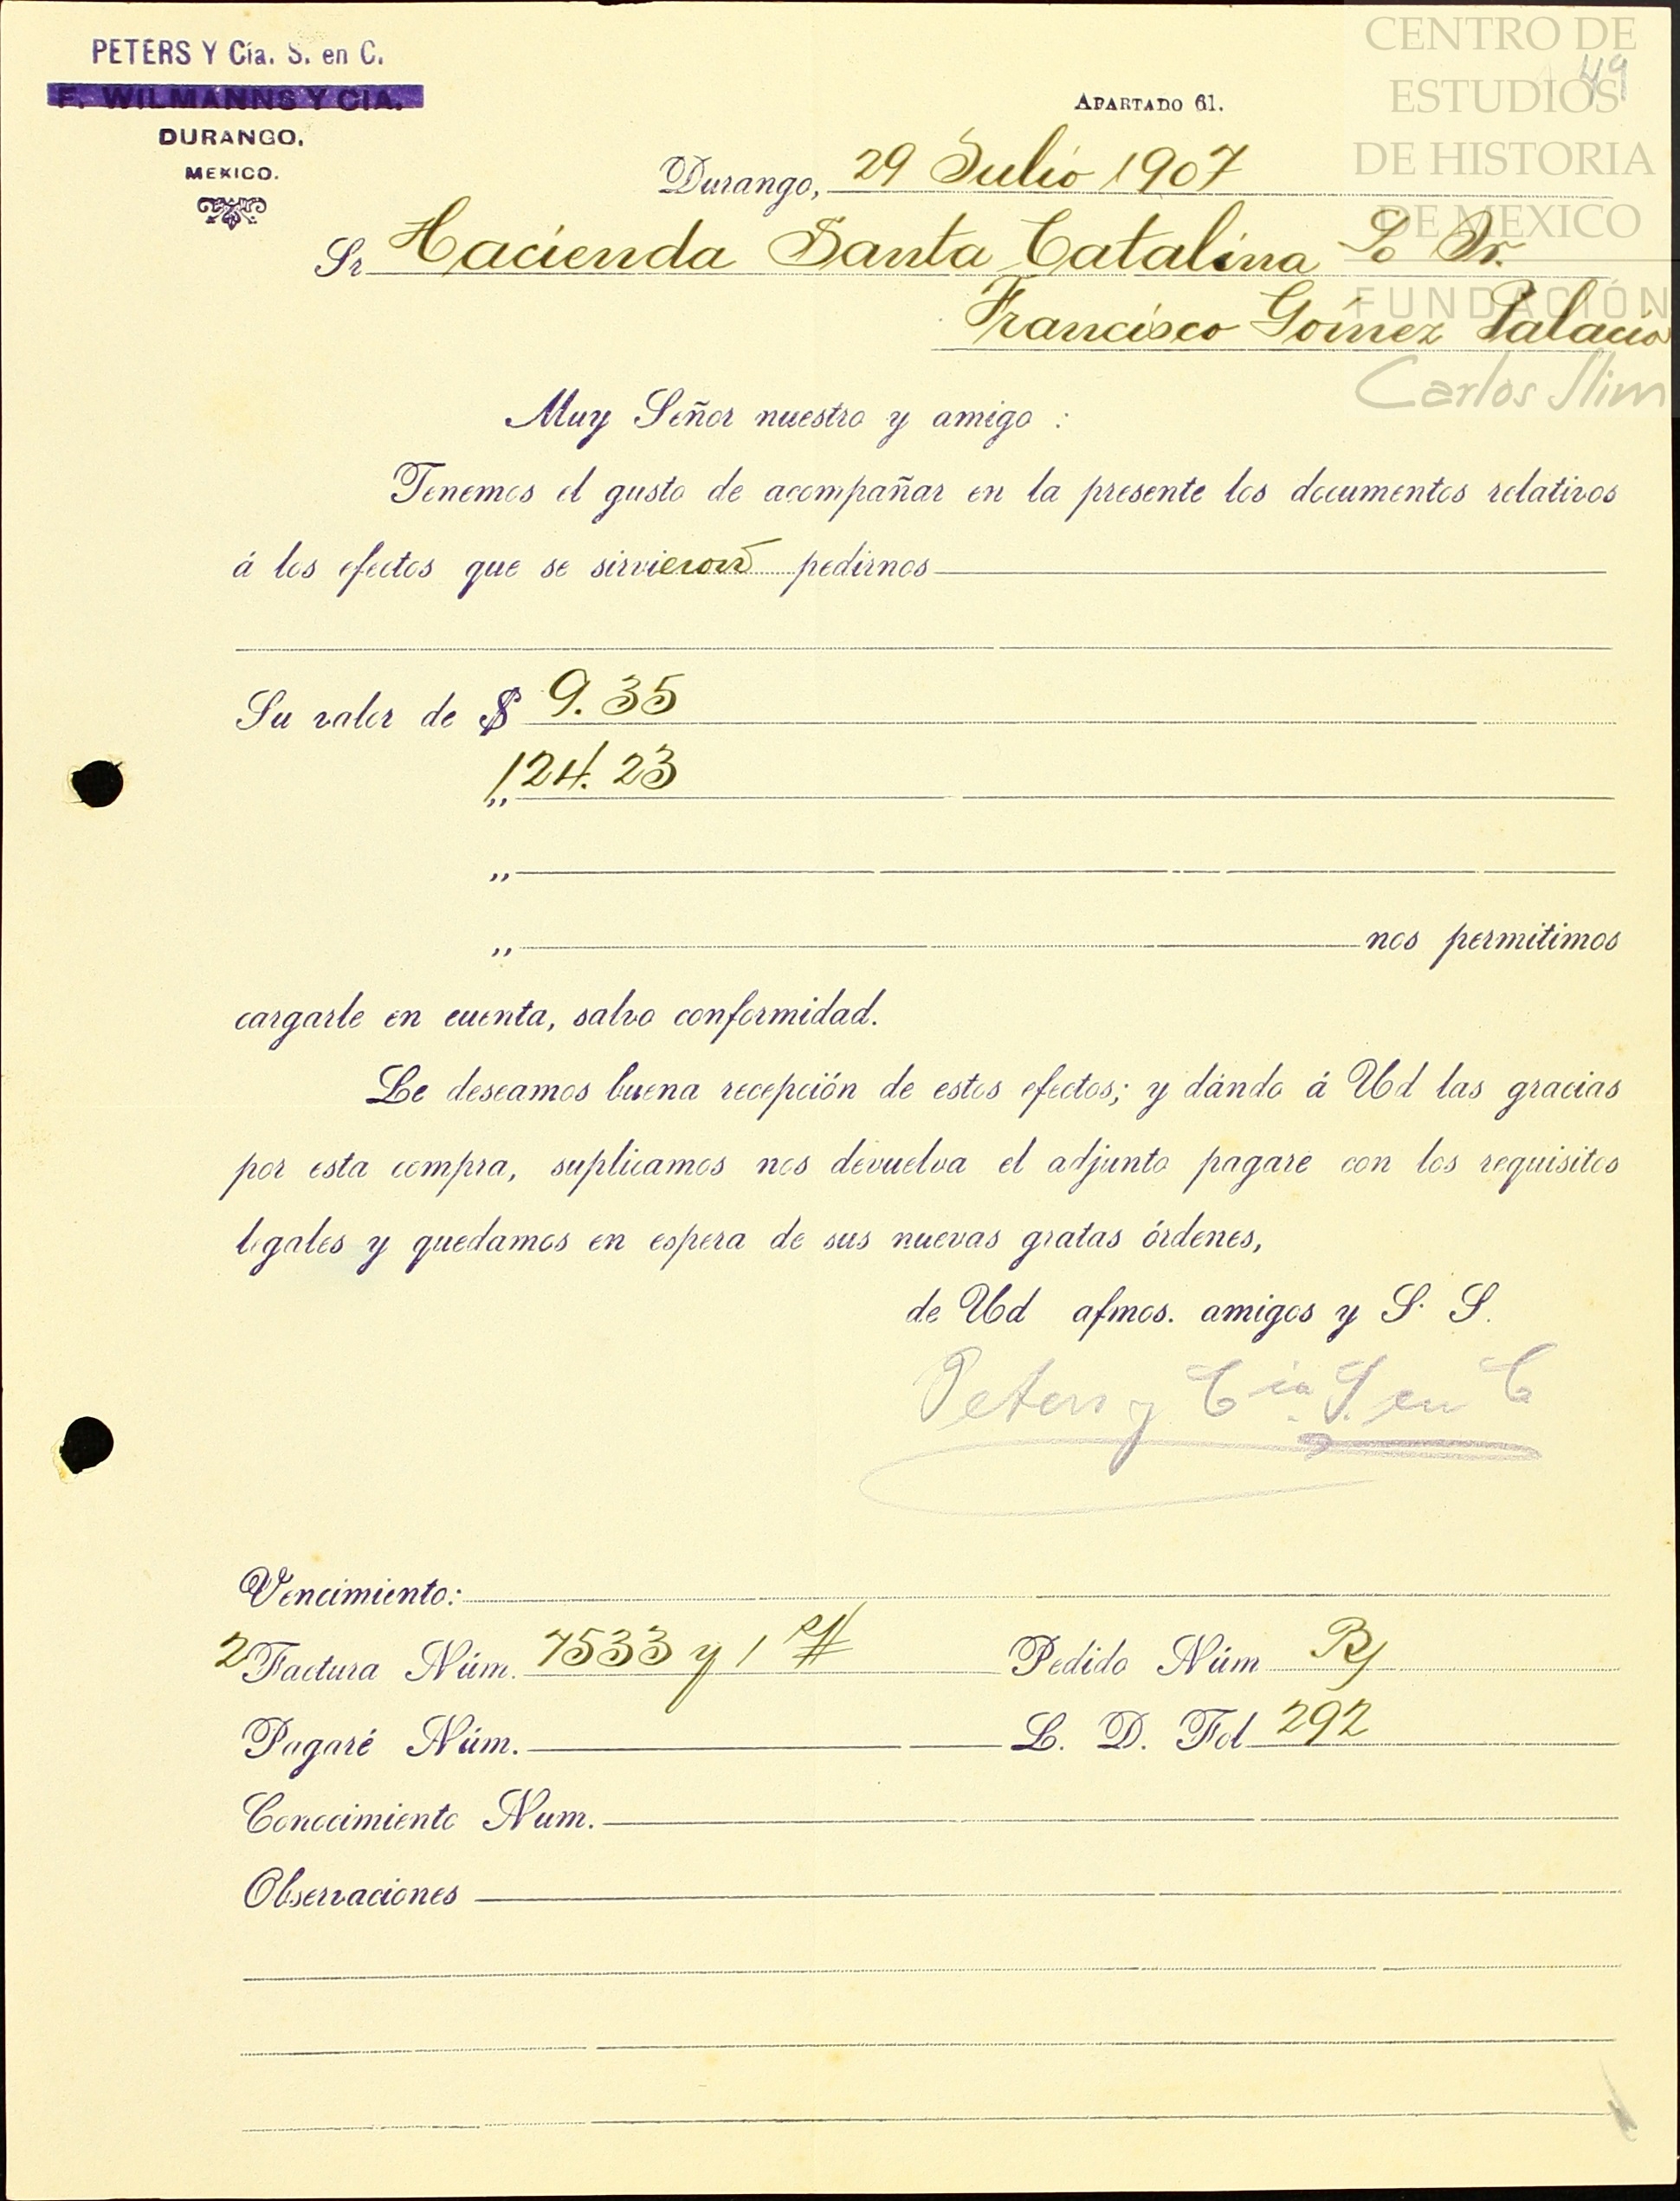 PETERS Y Cía. S. en C.
F. WILMANNS Y CIA.
DURANGO,
MEXICO.
CENTRO DE
ESTUDIOS
DE HISTORIA
DE MEXICO
FUNDACIÓN
Carlos Slim
49
APARTADO 61.
Durango, 29 Julio 1907
Sr Hacienda Santa Catalina Sr.
Francisco Gómez Palacio
Muy Señor nuestro y amigo :
Tenemos el gusto de acompañar en la presente los documentos relativos
á los efectos que se sirvieron pedirnos
Su valor de $ 9.35
„ 124.23
„
„ nos permitimos
cargarle en cuenta, salvo conformidad.
Le deseamos buena recepción de estos efectos; y dándo á Ud las gracias
por esta compra, suplicamos nos devuelva el adjunto pagare con los requisitos
legales y quedamos en espera de sus nuevas gratas órdenes,
de Ud afmos. amigos y S. S.
Peters y Cia. S. en C
Vencimiento:
2 Factura Núm. 7533 y 1 Pedido Núm
Pagaré Núm. L. D. Fol 292
Conocimiento Num.
Observaciones